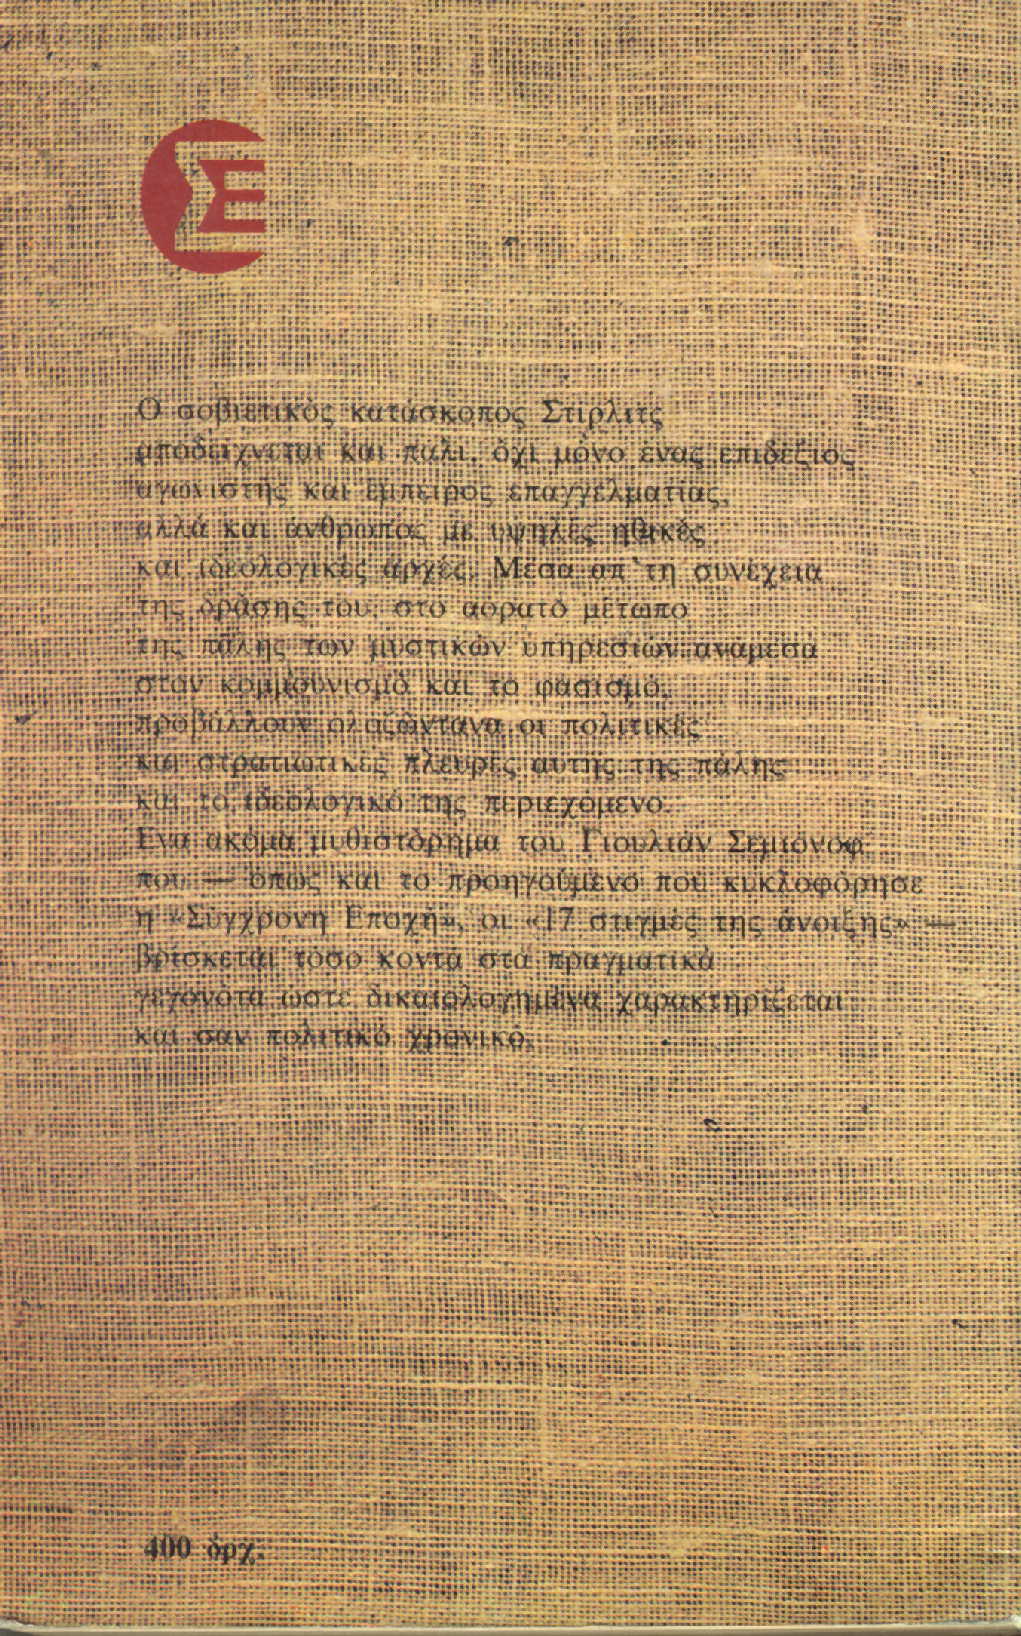 ΣΕ
Ο σοβιετικός κατάσκοπος Στίρλιτς
αποδείχνεται και πάλι, όχι μόνο ένας επιδέξιος
αγωνιστής και έμπειρος επαγγελματίας,
αλλά και άνθρωπος με υψηλές ηθικές
και ιδεολογικές αρχές. Μέσα απ' τη συνέχεια
της δράσης του, στο αόρατο μέτωπο
της πάλης των μυστικών υπηρεσιών ανάμεσα
στον κομμουνισμό και το φασισμό,
προβάλλουν ολοζώντανα οι πολιτικές
και στρατιωτικές πλευρές αυτής της πάλης
και το ιδεολογικό της περιεχόμενο.
Ένα ακόμα μυθιστόρημα του Γιουλιάν Σεμιόνοφ
που — όπως και το προηγούμενο που κυκλοφόρησε
η «Σύγχρονη Εποχή», οι «17 στιγμές της άνοιξης» —
βρίσκεται τόσο κοντά στα πραγματικά
γεγονότα ώστε δικαιολογημένα χαρακτηρίζεται
και σαν πολιτικό χρονικό.
400 δρχ.